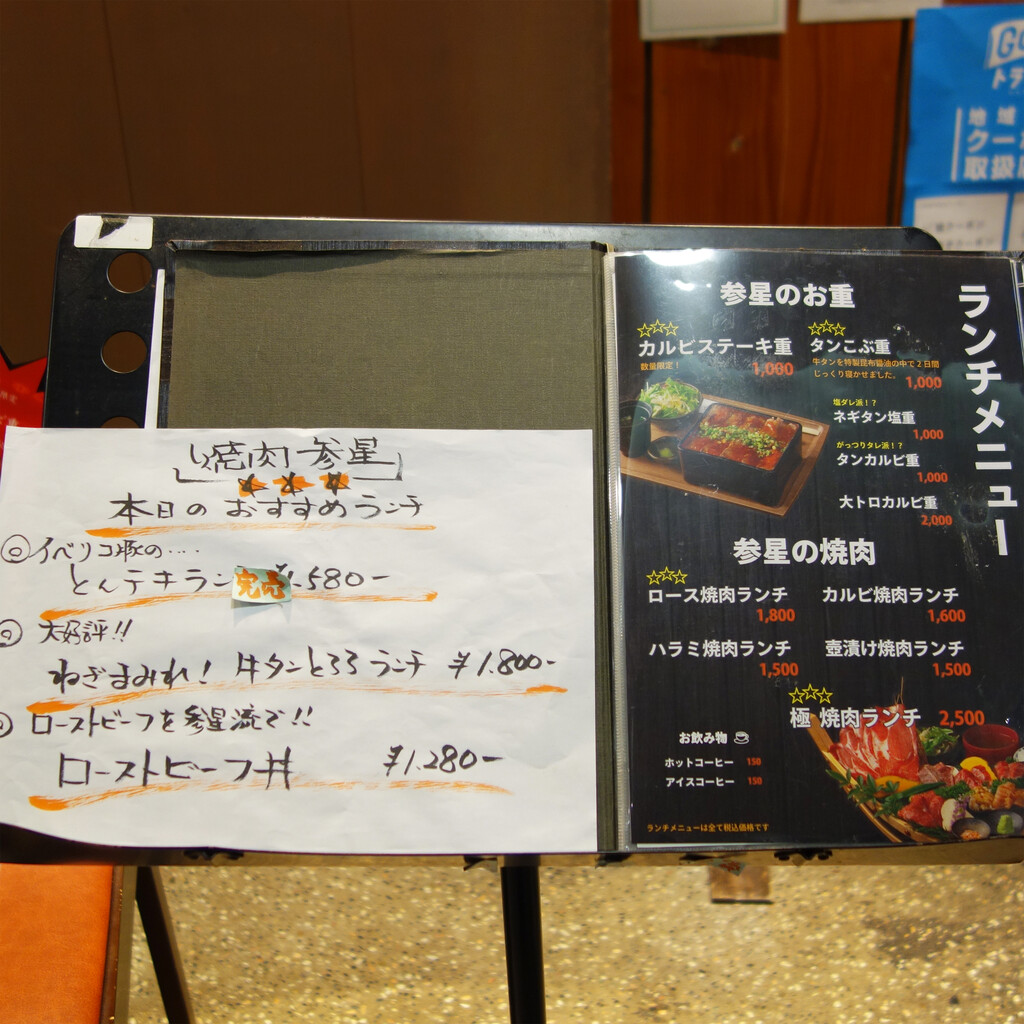 焼肉 参星
本日の おすすめランチ
イベリコ豚の....
とんテキラン
完売
580-
大好評!!
ねぎまみれ! 牛タンとろろランチ ¥1.800-
ローストビーフを参星流で!!
ローストビーフ丼 ¥1.280-
ランチメニュー
参星のお重
☆☆☆ ☆☆☆
カルビステーキ重 タンこぶ重
数量限定! 1,000
牛タンを特製昆布醤油の中で2日間
じっくり寝かせました。 1,000
塩ダレ派!?
ネギタン塩重
1,000
がっつりタレ派!?
タンカルビ重
1,000
大トロカルビ重
2,000
参星の焼肉
☆☆☆
ロース焼肉ランチ カルビ焼肉ランチ
1,800 1,600
ハラミ焼肉ランチ 壺漬け焼肉ランチ
1,500 1,500
☆☆☆
極 焼肉ランチ 2,500
お飲み物
ホットコーヒー 150
アイスコーヒー 150
ランチメニューは全て税込価格です
GO
トラ
地域
クー
取扱